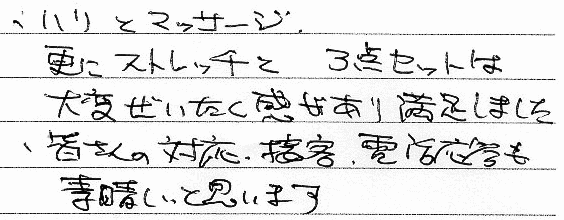 ・ハリとマッサージ.
更にストレッチと 3点セットは
大変ぜいたく感があり満足しました
・皆さんの対応.接客.電話応答も
素晴しいと思います